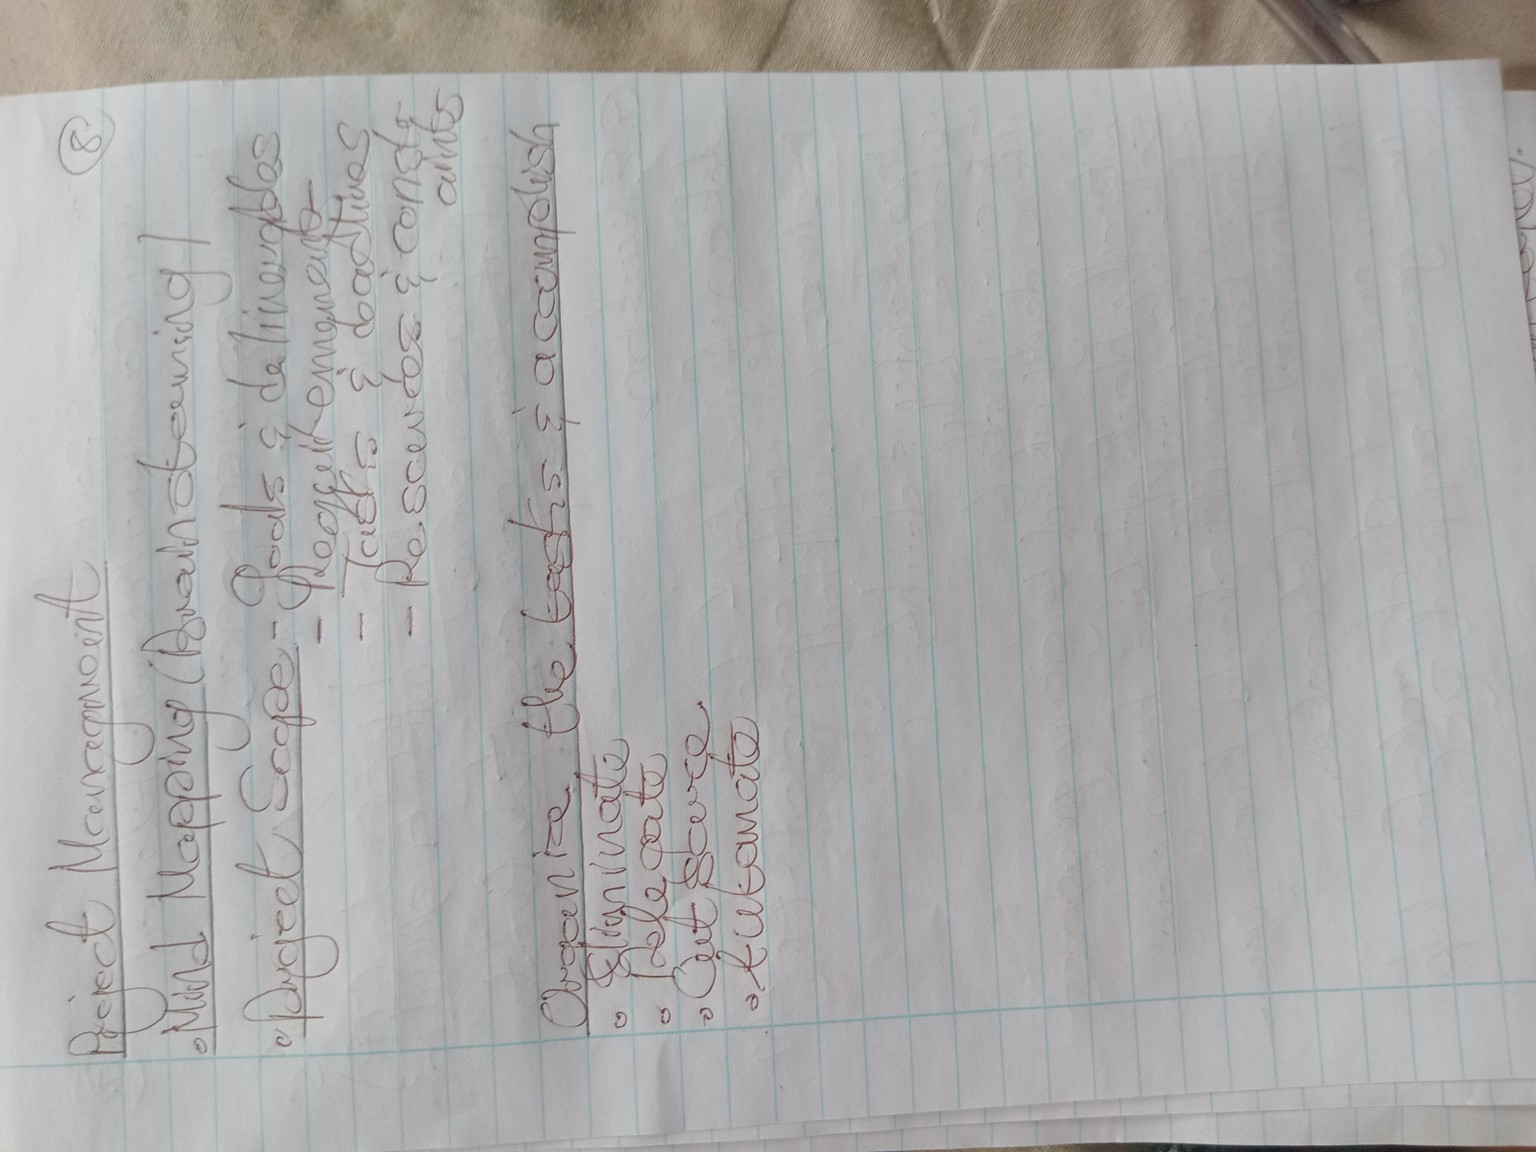 8
Project Managment
• Mind Mapping (Brainstorming)
• Project Scope - Goals & deliverables
- Requirements
- Tasks & deadlines
- Resources & constr
aints
Organize the tasks & accomplish
• Eliminate
• Delegate
• Out source
• Automate